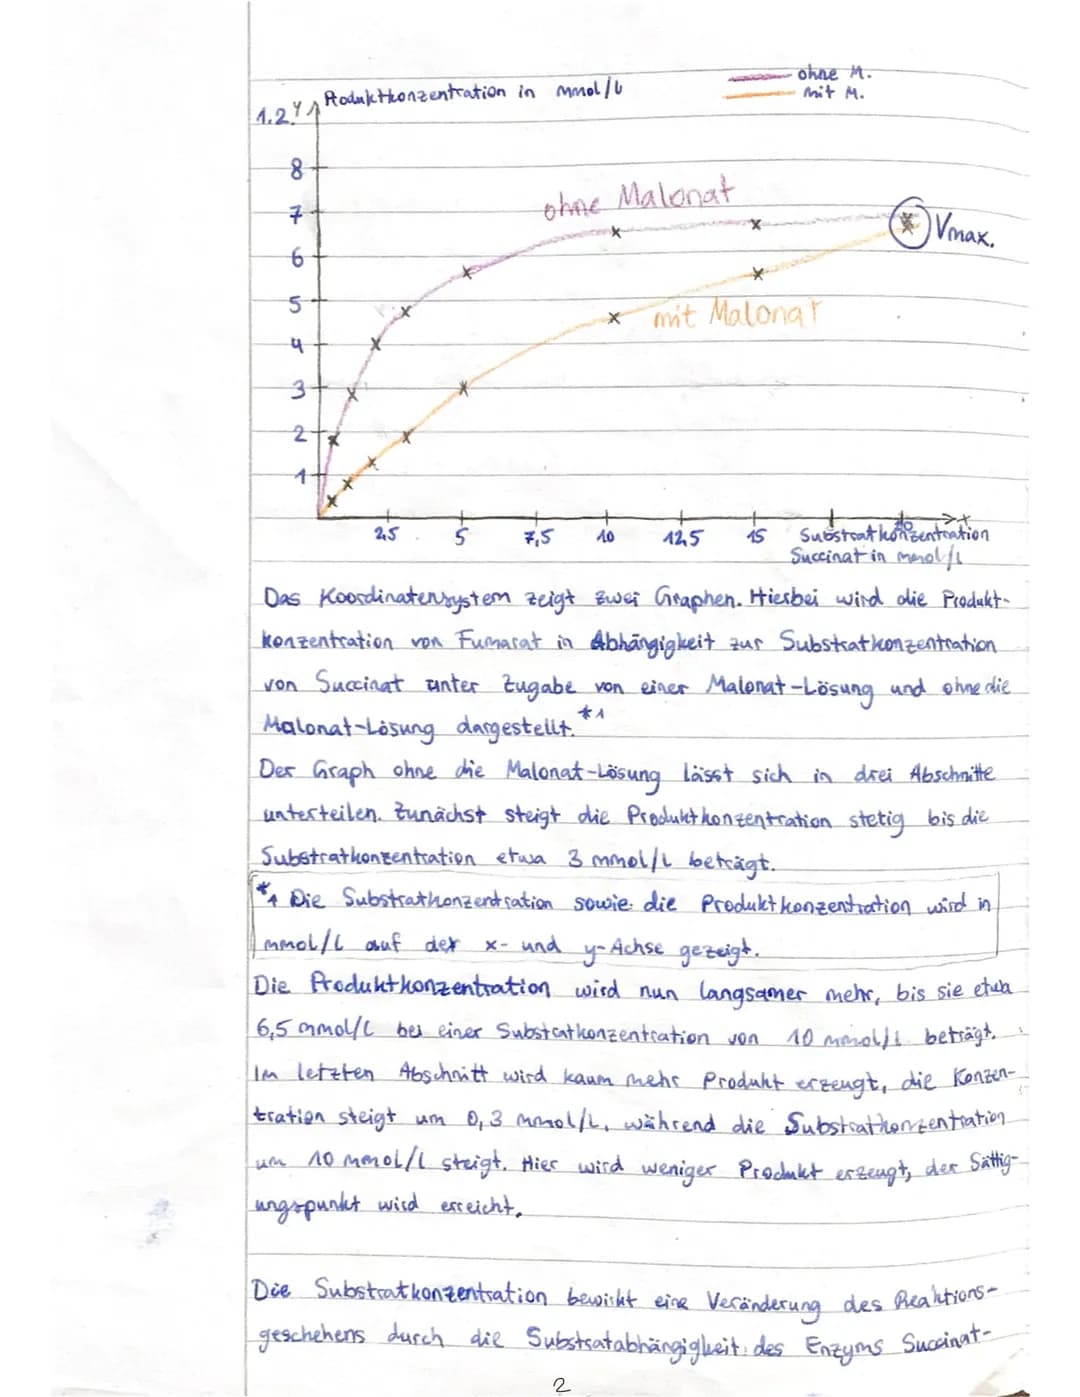 ohne M.
mit M.
Produktkonzentration in mmol/l
1.2. y
8
7
6
5
4
3
2
1
ohne Malonat
Vmax.
mit Malonat
2,5 5 7,5 10 12,5 15 20 x
Substratkonzentration
Succinat in mmol/l
Das Koordinatensystem zeigt zwei Graphen. Hierbei wird die Produkt-
konzentration von Fumarat in Abhängigkeit zur Substratkonzentration
von Succinat unter Zugabe von einer Malonat-Lösung und ohne die
Malonat-Lösung dargestellt. *1
Der Graph ohne die Malonat-Lösung lässt sich in drei Abschnitte
unterteilen. Zunächst steigt die Produktkonzentration stetig bis die
Substratkonzentration etwa 3 mmol/l beträgt.
*1 Die Substratkonzentration sowie die Produktkonzentration wird in
mmol/l auf der x- und y-Achse gezeigt.
Die Produktkonzentration wird nun langsamer mehr, bis sie etwa
6,5 mmol/l bei einer Substratkonzentration von 10 mmol/l beträgt.
Im letzten Abschnitt wird kaum mehr Produkt erzeugt, die Konzen-
tration steigt um 0,3 mmol/l, während die Substratkonzentration
um 10 mmol/l steigt. Hier wird weniger Produkt erzeugt, der Sättig-
ungspunkt wird erreicht.
Die Substratkonzentration bewirkt eine Veränderung des Reaktions-
geschehens durch die Substratabhängigkeit des Enzyms Succinat-
2